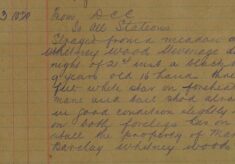 3 1030 From D.C.C.
To All Stations
Strayed from a meadow at
Whitney Wood Stevenage
night of 21st inst a black
9 years old 16 hands
feet white star on forehead
mane and tail shod
in good condition slightly
on both forelegs
the property of
Barclay Whitney Wood